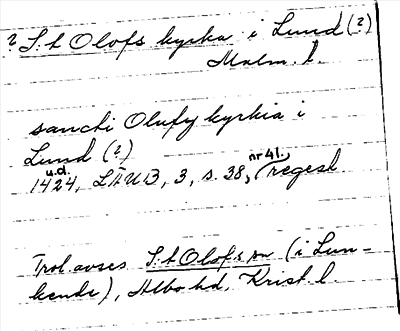 ? S:t Olofs kyrka i Lund (?)
Malm. l.
sancti Olufz kyrkia i
Lund (?)
u.d. nr 41.
1424, LÄUB, 3, s. 38, (regest
Trol. avses S:t Olofs sn (i Lun-
kende), Albo hd, Krist. l.